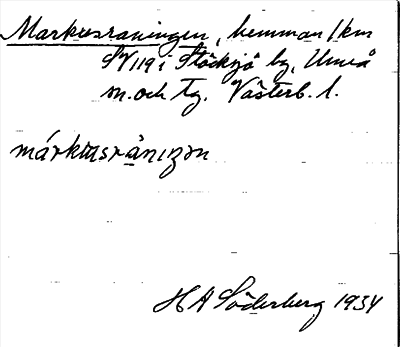 Markusraningen, hemman 1 km
SV 119 i Stöcksjö by, Umeå
sn. och tg. Västerb. l.
márkɯsrånıŋən
H A Söderberg 1934